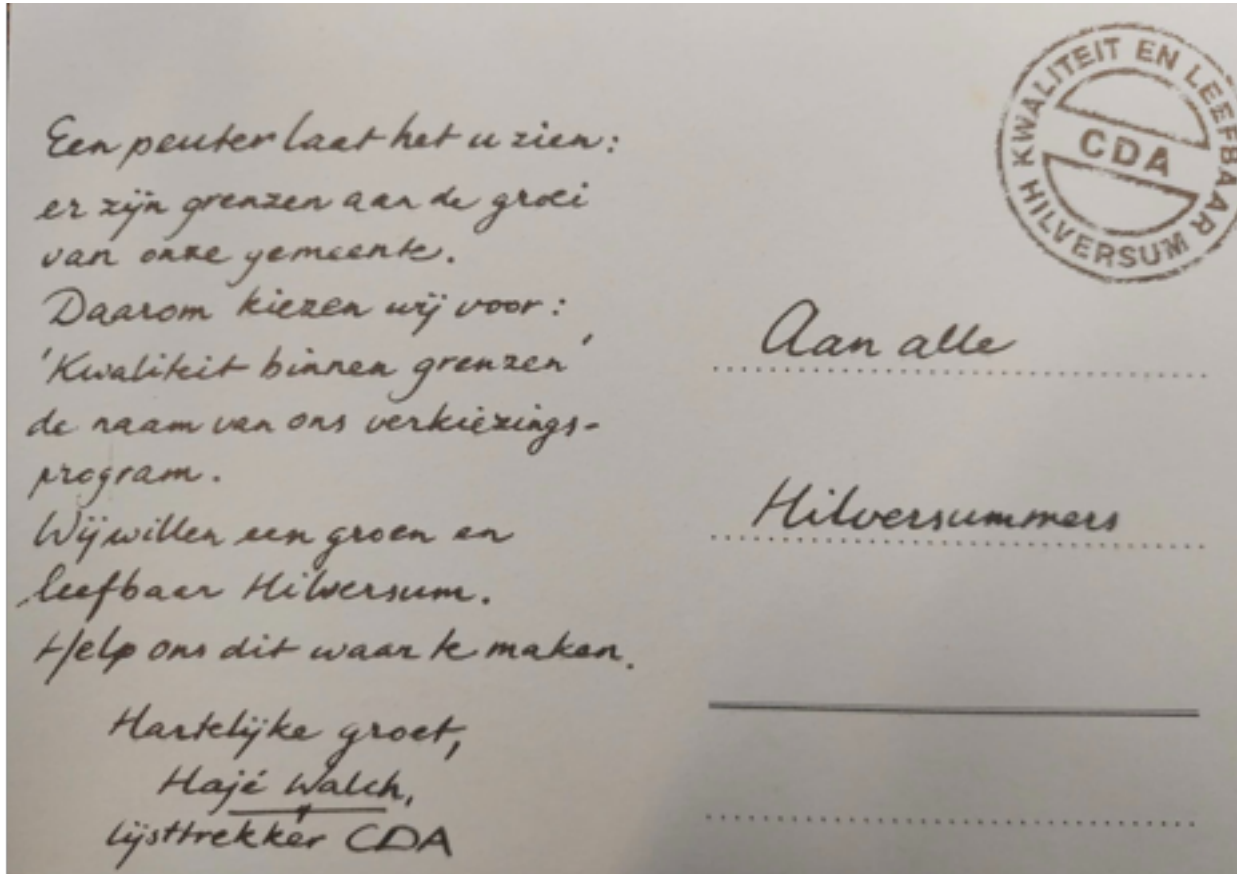 Een peuter laat het u zien:
er zijn grenzen aan de groei
van onze gemeente.
Daarom kiezen wij voor:
'Kwaliteit binnen grenzen'
de naam van ons verkiezings-
program.
Wij willen een groen en
leefbaar Hilversum.
Help ons dit waar te maken.
Hartelijke groet,
Hajé Walch,
lijsttrekker CDA
KWALITEIT EN LEEFBAAR
CDA
HILVERSUM
Aan alle
Hilversummers